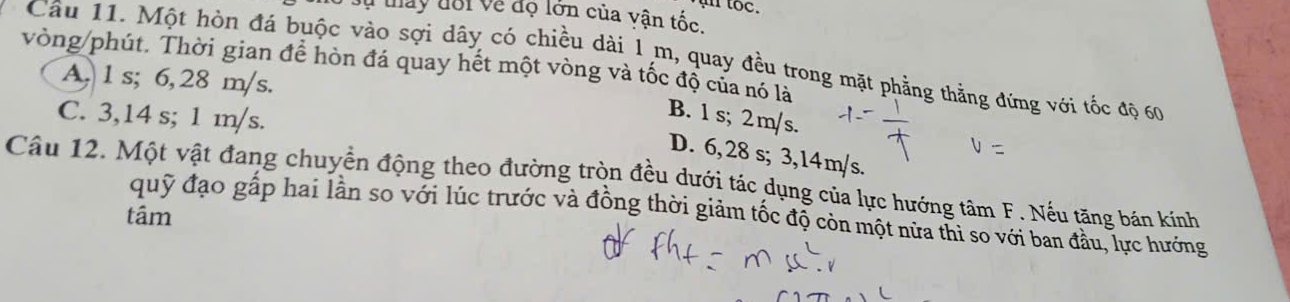 sự thay đổi về độ lớn của vận tốc.
Câu 11. Một hòn đá buộc vào sợi dây có chiều dài 1 m, quay đều trong mặt phẳng thẳng đứng với tốc độ 60
vòng/phút. Thời gian để hòn đá quay hết một vòng và tốc độ của nó là
A. 1 s; 6,28 m/s.
B. 1 s; 2m/s.
C. 3,14 s; 1 m/s.
D. 6,28 s; 3,14m/s.
v =
Câu 12. Một vật đang chuyển động theo đường tròn đều dưới tác dụng của lực hướng tâm F . Nếu tăng bán kính
quỹ đạo gấp hai lần so với lúc trước và đồng thời giảm tốc độ còn một nửa thì so với ban đầu, lực hướng
tâm
Fht = m